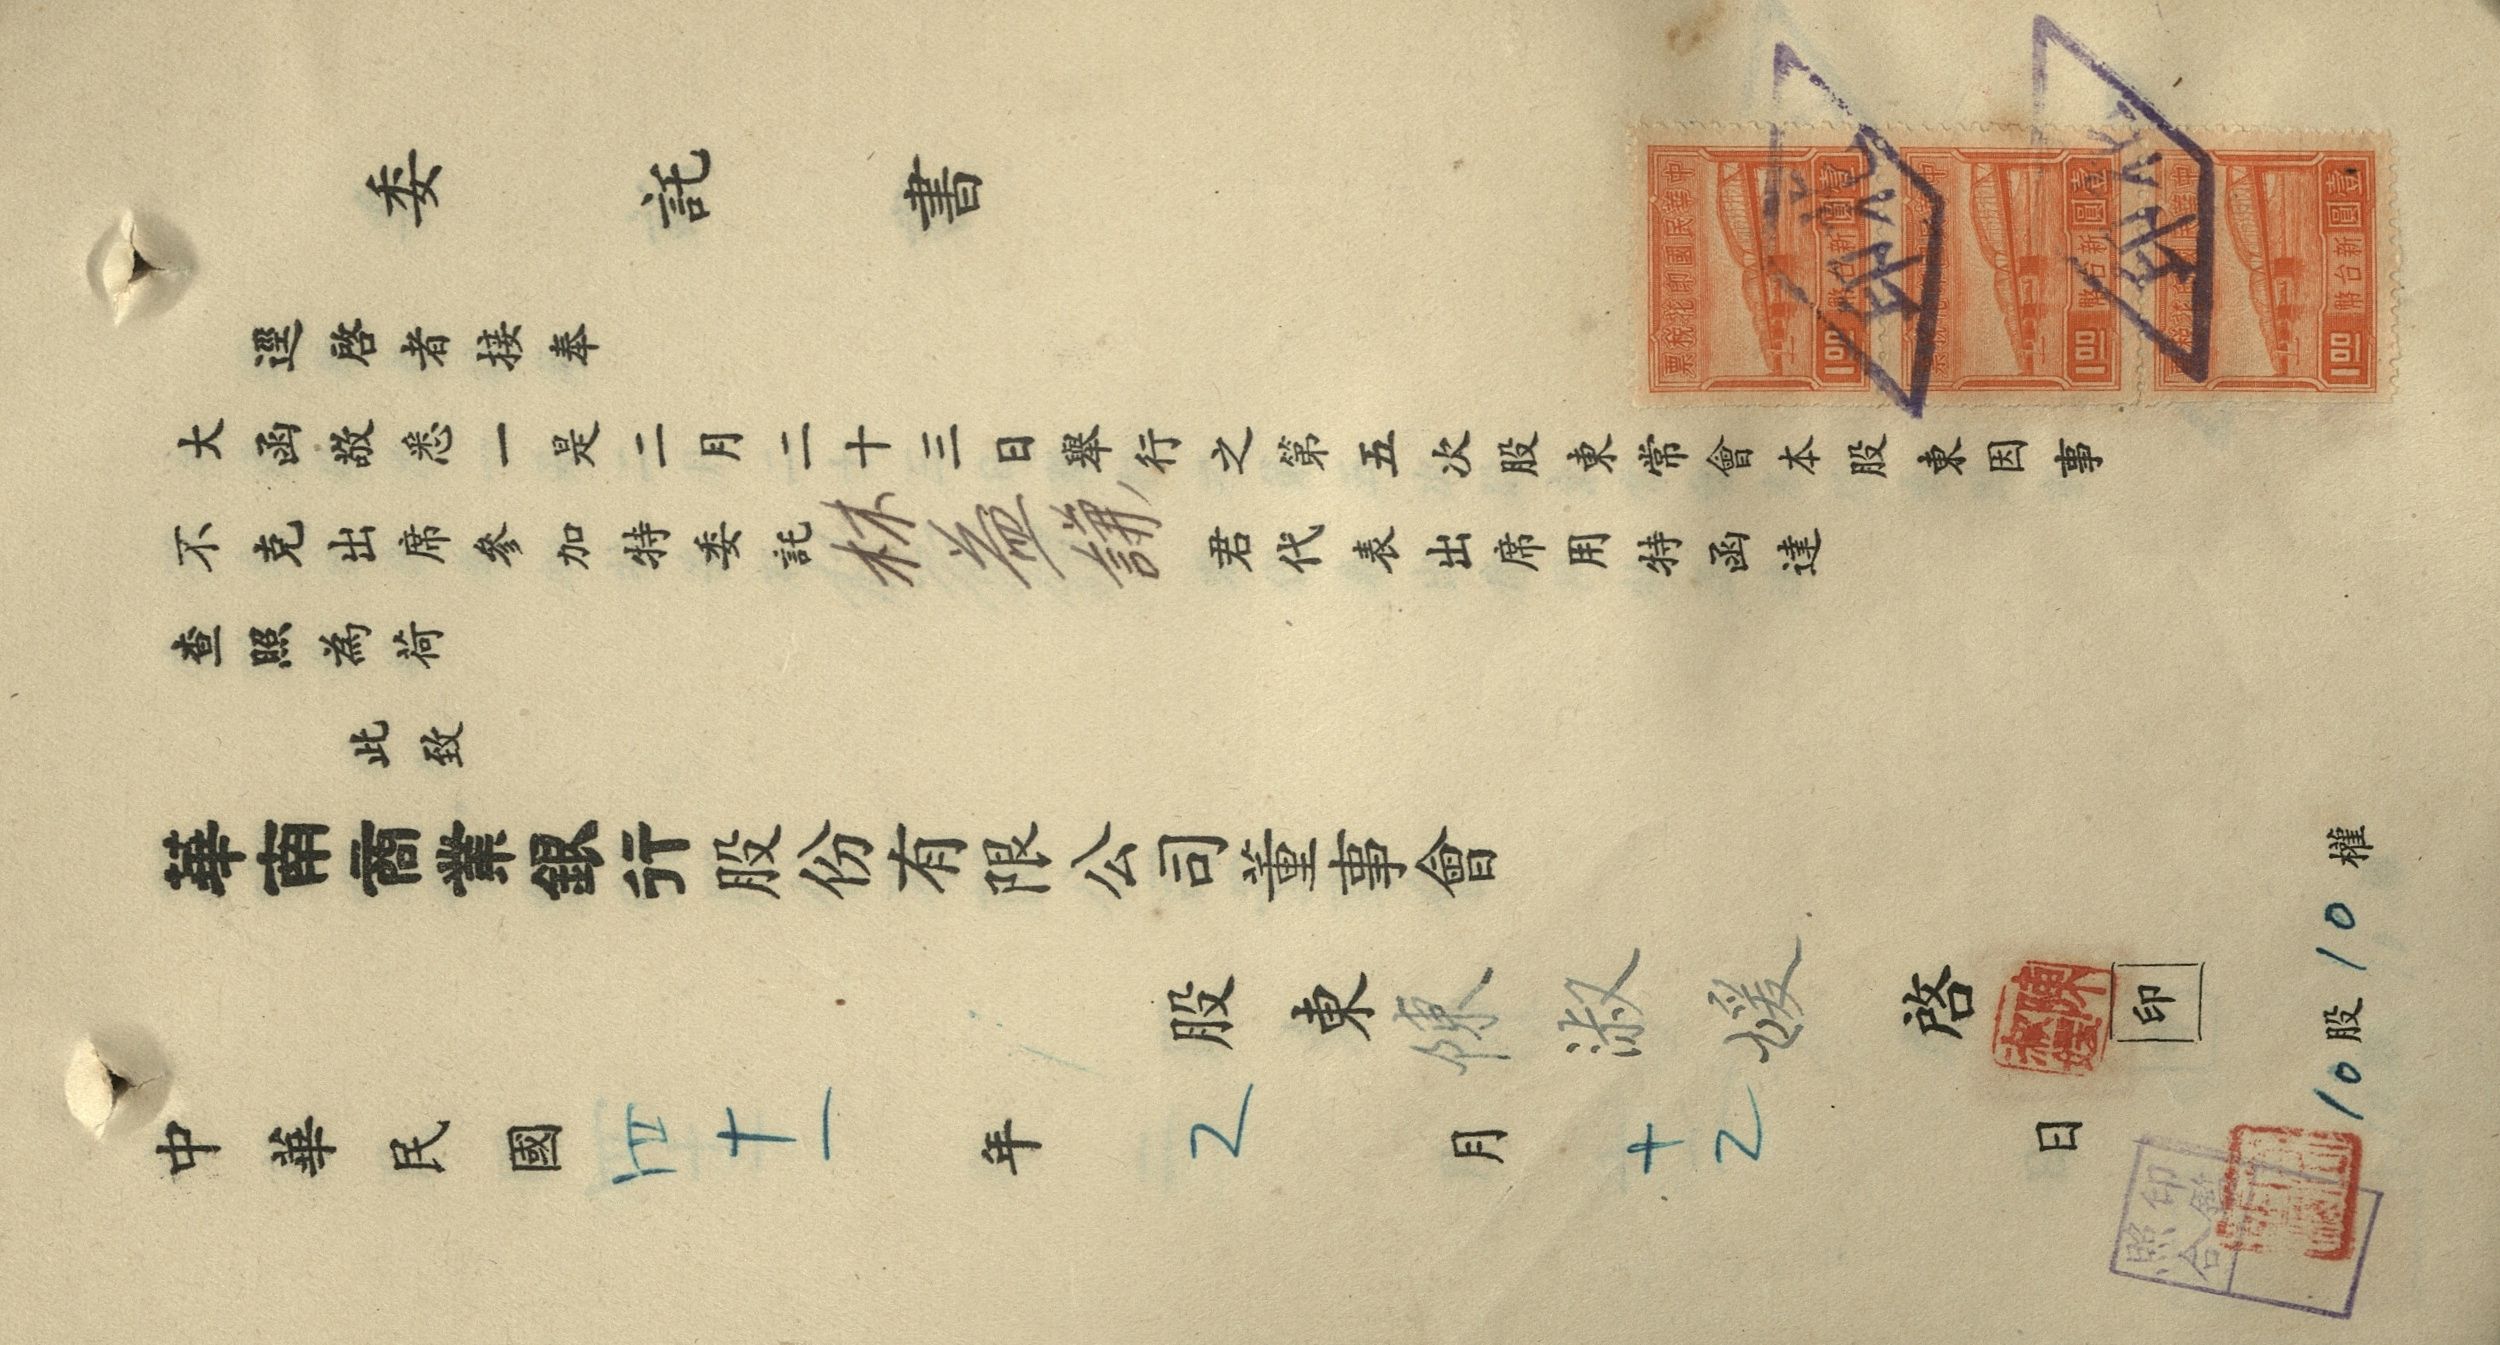 委託書
逕啓者接奉
大函敬悉一是二月二十三日舉行之第五次股東常會本股東因事
不克出席參加特委託林益謙君代表出席用特函達
查照為荷
此致
華南商業銀行股份有限公司董事會
股東陳淑媛啓
印
中華民國四十一年2月十2日
10股10權
印鑑
照合
中華民國印花稅票
壹圓新台幣
1.00
壹圓新台幣
1.00
壹圓新台幣
1.00